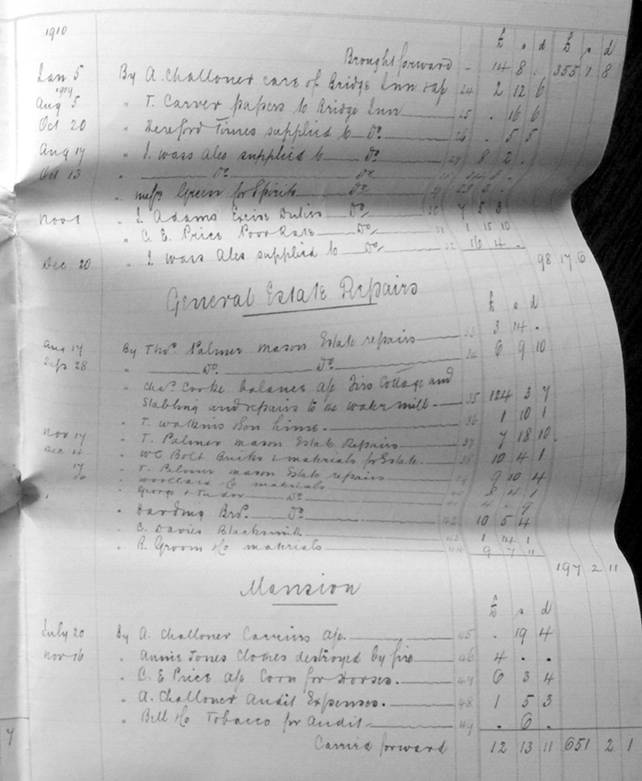 1910
£ s d £ s d
Brought forward - 14 8 . 355 1 8
Jan 5 By A. Challoner care of Bridge Inn 24 2 12 6
1909
Aug 5 " T. Carver papers to Bridge Inn 25 . 16 6
Oct 20 " Hereford Times supplied to Do 26 . 5 5
Aug 17 " J. Wass Ales supplied to Do 8 2 .
Oct 13 " Do Do
" Messrs Green for Spirits Do
Nov 1 " J. Adams Excise Duties Do 7 5 3
" C. E. Price Poor Rate Do 1 15 10
Dec. 20 " J. Wass Ales supplied to Do 16 4 .
98 17 6
General Estate Repairs
£ s d
Aug 17 By Thos. Palmer mason Estate repairs 33 3 14 .
Sept 28 " Do Do 34 6 9 10
" Chas. Cooke balance a/c Firs Cottage and
Stabling and repairs to water mill 35 124 3 7
" T. Watkins Son lime 36 1 10 1
Nov 17 " T. Palmer mason Estate Repairs 37 7 18 10
" W. C. Bolt Bricks & materials for Estate 38 10 4 1
17 " T. Palmer mason Estate repairs 9 10 4
" materials 8 4 1
" George Do
" Harding Bros. Do 42 10 5 4
" C. Davies Blacksmith 1 14 1
" R. Groom & Co materials 44 9 7 11
197 2 11
Mansion
£ s d
July 20 By A. Challoner Carriers a/c 45 . 19 4
Nov 16 " Annie Jones Clothes destroyed by fire 46 4 . .
" C. E. Price a/c Corn for Horses. 47 6 3 4
" A. Challoner Audit Expenses. 48 1 5 3
" Bill & Co Tobacco for Audit 49 . 6 .
Carried forward 12 13 11 651 2 1
7